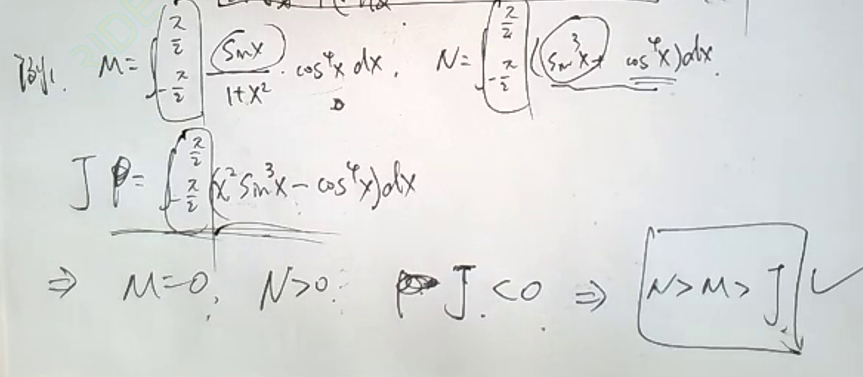 例1. M = ∫_{-π/2}^{π/2} sinx/(1+x²) · cos⁴x dx, N = ∫_{-π/2}^{π/2} (sin³x + cos⁴x)dx.
J = ∫_{-π/2}^{π/2} (x² sin³x - cos⁴x)dx
⇒ M=0, N>0. J<0 ⇒ N>M>J ✓